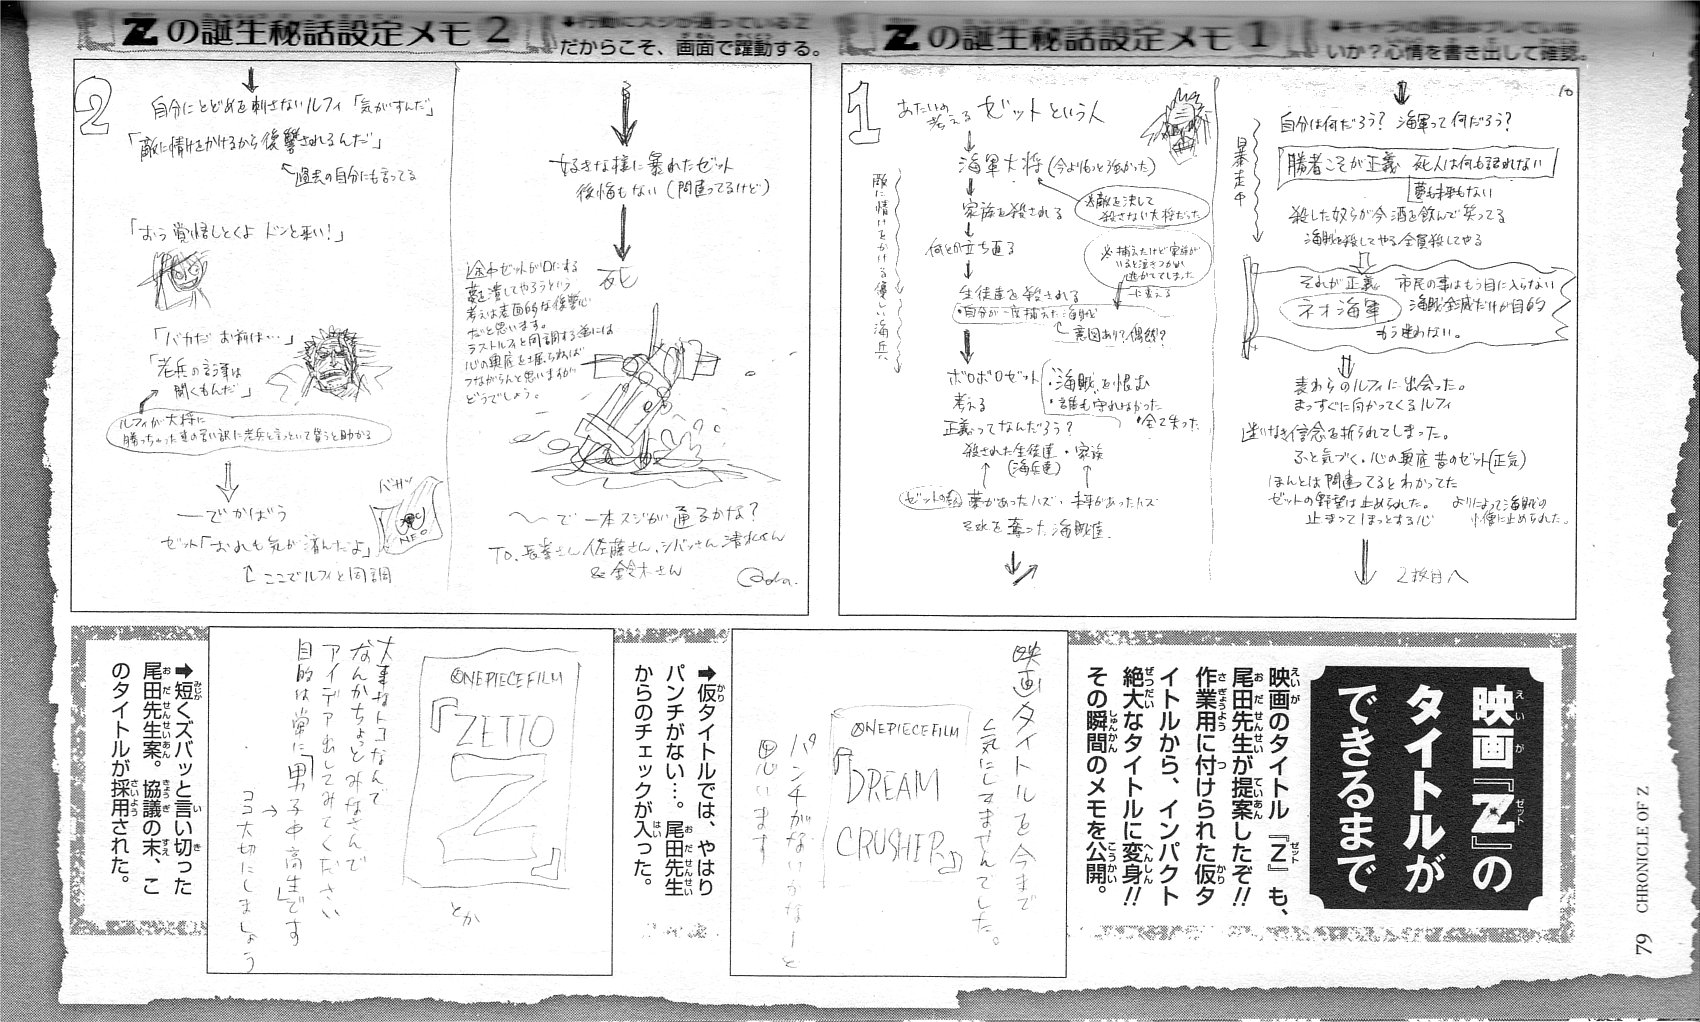 Zの誕生秘話設定メモ 1
いか?心情を書き出して確認。
1
あたいの考える ゼットという人
海軍大将(今よりもっと強かった)
※敵を決して
殺さない大将だった
家族を殺される
何とか立ち直る
※捕えたけど家族が
いると泣きつかれ
逃がてしまった
生徒達を殺される
・自分が一度捕えた海賊に
意図あり?偶然?
敵に情けをかける優しい海兵
ボロボロゼット
・海賊を恨む
・誰も守れなかった
・全て失った
考える
正義ってなんだろう?
殺された生徒達・家族
(海兵達)
夢があったハズ・未来があったハズ
それを奪った海賊達
10
自分は何だろう? 海軍って何だろう?
勝者こそが正義 死人は何も語れない
夢も未来もない
殺した奴らが今酒を飲んで笑ってる
海賊を殺してやる全員殺してやる
暴走中
それが正義 市民の事はもう目に入らない
ネオ海軍 海賊全滅だけが目的
もう迷わない。
麦わらのルフィに出会った。
まっすぐに向かってくるルフィ
迷いなき信念を折られてしまった。
ふと気づく・心の奥底昔のゼット(正気)
ほんとは間違ってるとわかってた
ゼットの野望は止められた。 よりによって海賊の
小僧に止められた。
止まってほっとする心
2枚目へ
Zの誕生秘話設定メモ 2
◆行動にスジが通っているZ
だからこそ、画面で躍動する。
2
自分にとどめを刺さないルフィ「気がすんだ」
「敵に情けをかけるから復讐されるんだ」
過去の自分にも言ってる
「おう覚悟しとくよ ドンと来い!」
「バカだ お前は…」
「老兵の言う事は
聞くもんだ」
ルフィが大将に
勝っちゃった事の言い訳に老兵と言っといて貰うと助かる
〜でかばう
バサッ
NEO
ゼット「おれも気が済んだよ」
ここでルフィと同調
好きな様に暴れたゼット
後悔もない(間違ってるけど)
死
途中ゼットが口にする
夢を潰してやろうという
考えは表面的な復讐心
だと思います。
ラストルフィと同調する為には
心の奥底を掘られれば
つながらんと思いますが
どうでしょう。
〜で一本スジが通るかな?
TO.長峯さん、佐藤さん、シバッさん、清水さん
&鈴木さん
Oda.
映画『Z』の
タイトルが
できるまで
映画のタイトル『Z』も、
尾田先生が提案したぞ!!
作業用に付けられた仮タ
イトルから、インパクト
絶大なタイトルに変身!!
その瞬間のメモを公開。
映画タイトルを今まで
気にしてませんでした。
ONEPIECEFILM
『DREAM
CRUSHER』
パンチがないかなーと
思います
➡仮タイトルでは、やはり
パンチがない…。尾田先生
からのチェックが入った。
ONEPIECEFILM
『ZETTO
Z』
とか
大事なトコなんで
なんかちょっとみなさんで
アイデア出してみてください
目的は常に「男子中高生」です
ヨ大切にしましょう
➡短くズバッと言い切った
尾田先生案。協議の末、こ
のタイトルが採用された。
79 CHRONICLE OF Z